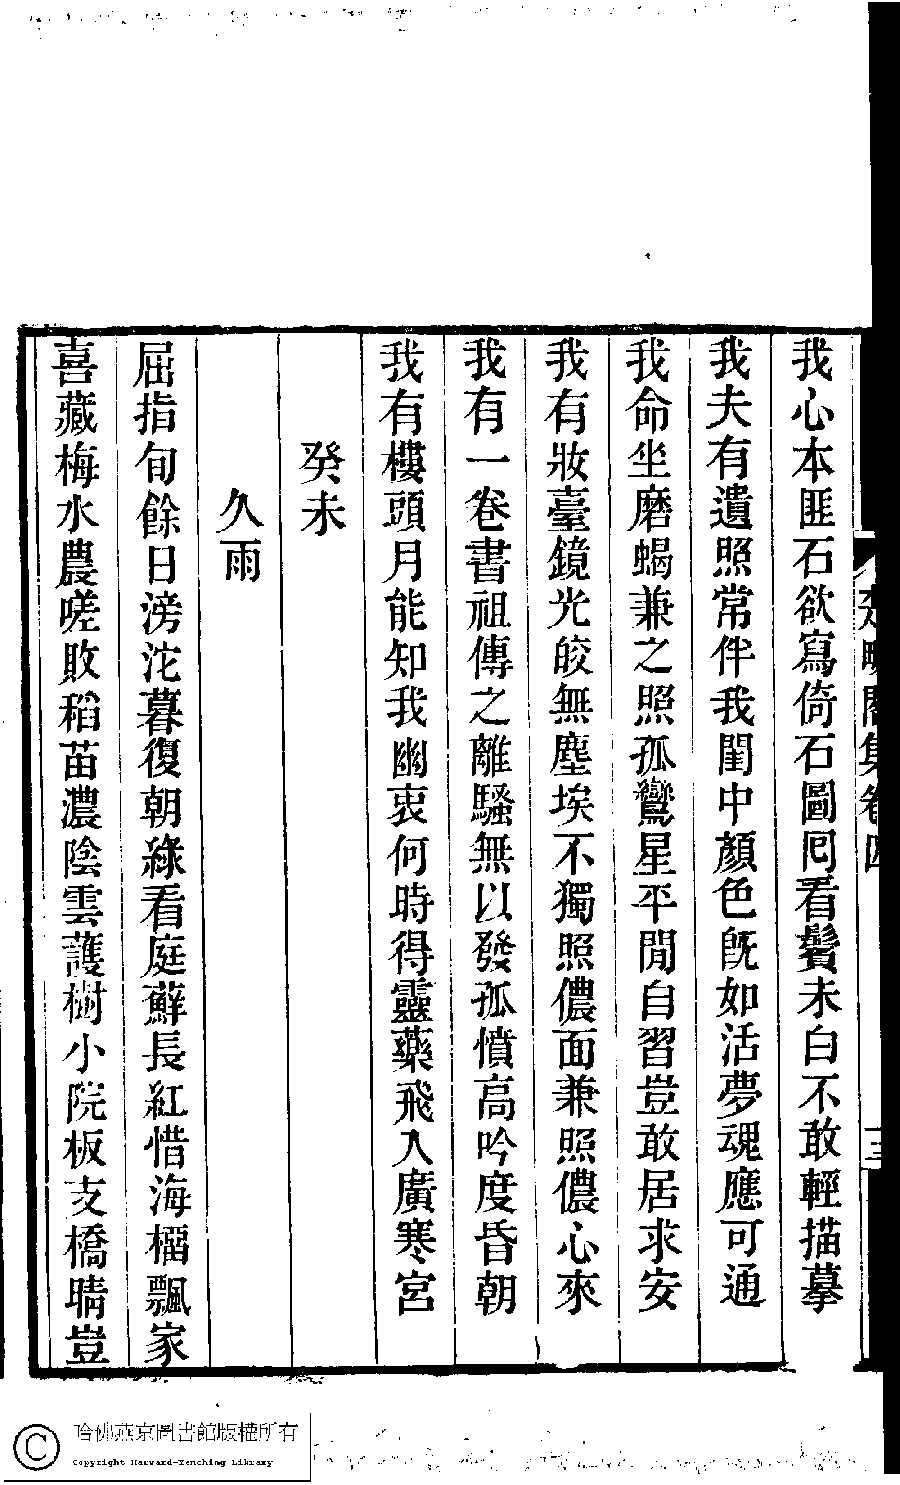 我心本匪石欲寫倚石圖囘看鬢未白不敢輕描摹
我夫有遺照常伴我閨中顏色旣如活夢魂應可通
我命坐磨蝎兼之照孤鸞星平閒自習豈敢居求安
我有妝臺鏡光皎無塵埃不獨照儂面兼照儂心來
我有一卷書祖傳之離騷無以發孤憤高吟度昏朝
我有樓頭月能知我幽衷何時得靈藥飛入廣寒宮
癸未
久雨
屈指旬餘日滂沱暮復朝綠看庭蘚長紅惜海榴飄家
喜藏梅水農嗟敗稻苗濃陰雲護樹小院板支橋晴豈
集卷四
三
哈佛燕京圖書館版權所有
Copyright Harvard-Yenching Library